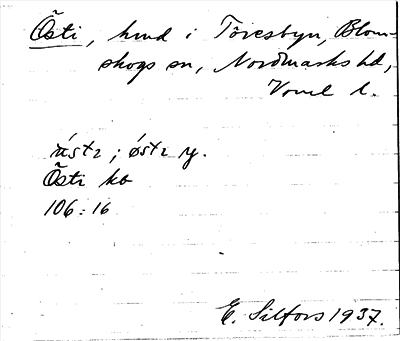 Östi, hmd i Töresbyn, Blom-
skogs sn, Nordmarks hd,
Verml l.
östi y.
Östi kb
106:16
E. Silfors 1937.